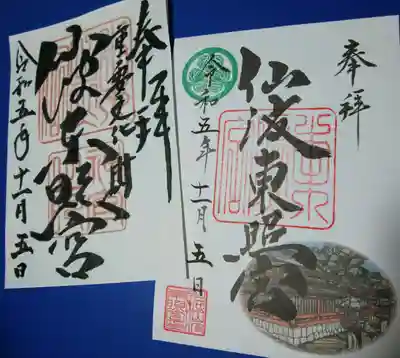 奉拝
仙波東照宮
令和五年十一月五日
奉拝
重要文化財
仙波東照宮
令和五年十一月五日